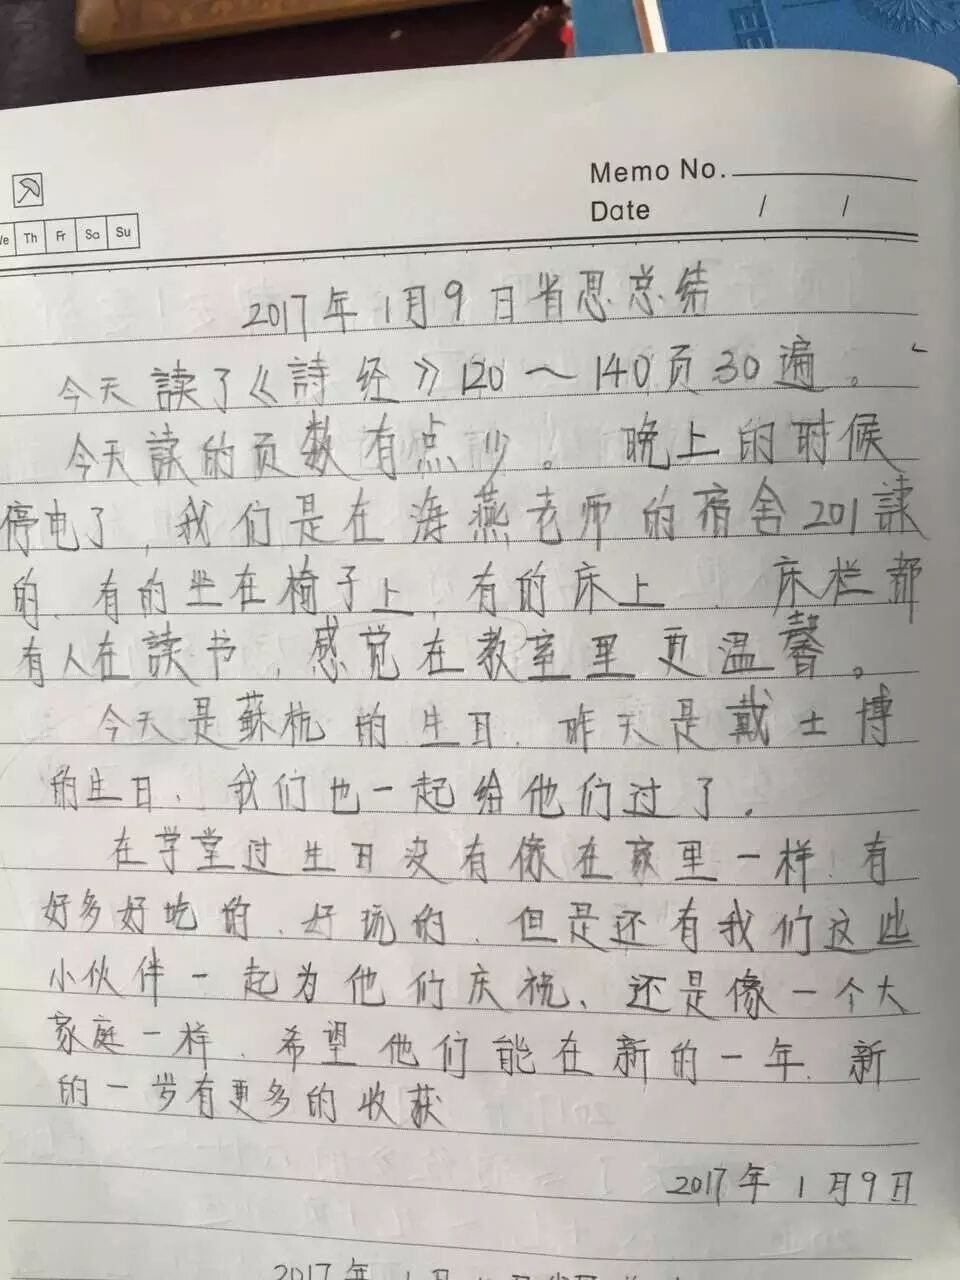 Memo No.
Date / /
We Th Fr Sa Su
2017年1月9日省思总结
今天读了《詩经》120～140页30遍。
今天读的页数有点少。晚上的时候
停电了,我们是在海燕老师的宿舍201读
的.有的坐在椅子上,有的床上.床栏都
有人在读书,感觉在教室里更温馨。
今天是蘇杭的生日.昨天是戴士博
的生日、我们也一起给他们过了.
在学堂过生日没有像在家里一样.有
好多好吃的.好玩的.但是还有我们这些
小伙伴一起为他们庆祝、还是像一个大
家庭一样.希望他们能在新的一年.新
的一岁有更多的收获
2017年1月9日
2017年1月